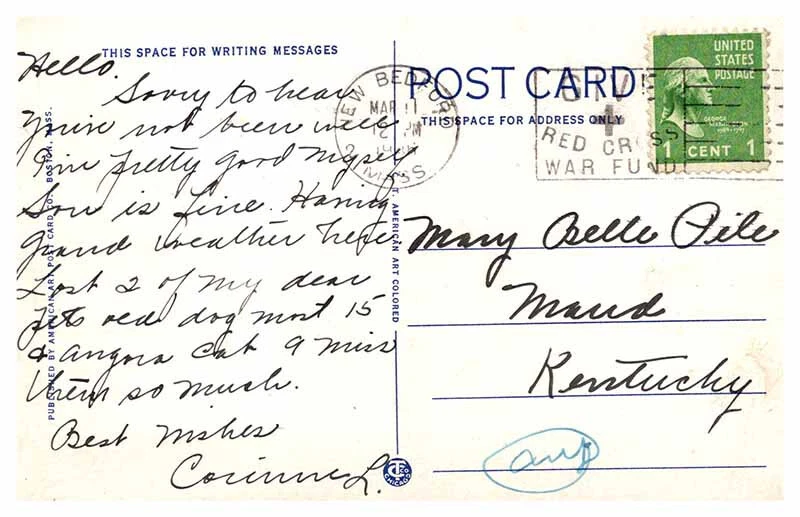 THIS SPACE FOR WRITING MESSAGES
Hello.
Sorry to hear
You've not been well
I'm pretty good myself
Son is fine. Having
grand weather here
Lost 2 of my dear
pets old dog most 15
& angora cat 9 miss
them so much.
Best Wishes
Corinne L.
PUBLISHED BY AMERICAN ART POST CARD CO., BOSTON, MASS.
T. AMERICAN ART COLORED
NEW BEDFORD
MAR 11
12 PM
MASS.
POST CARD
THIS SPACE FOR ADDRESS ONLY
GIVE
RED CROSS
WAR FUND
UNITED
STATES
POSTAGE
GEORGE
WASHINGTON
1 CENT 1
Mary Belle Pile
Maud
Kentucky
ans
CHICAGO